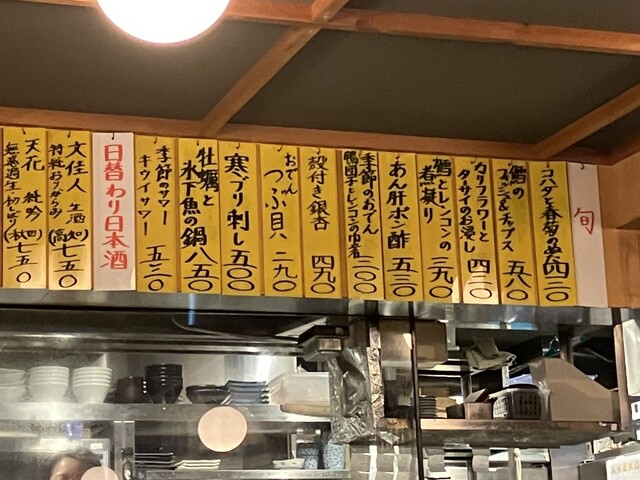 旬
コハダと春菊の
四二〇
鱈の
フィッシュ&チップス
五八〇
カリフラワーと
タアサイのお浸し
四二〇
鱈とレンコンの
煮凝り
三九〇
あん肝ポン酢
五三〇
季節のおでん
鴨団子とレンコンのゆ煮
三〇〇
殻付き銀杏
四九〇
おでん
つぶ貝
二九〇
寒ブリ刺し
五〇〇
牡蠣と
氷下魚の鍋
八五〇
季節のサワー
キウイサワー
五三〇
日替わり日本酒
文佳人 生酒
(高知)
七五〇
天花 純吟
無濾過生
(秋田)
七五〇